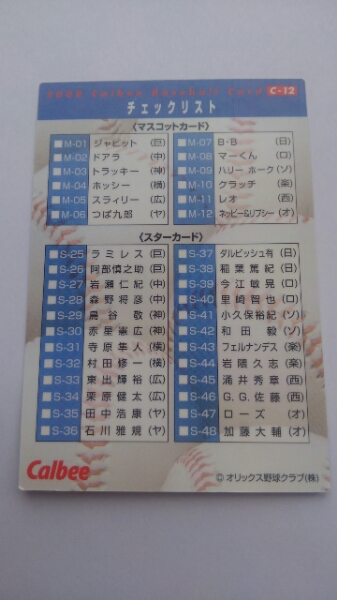 2008 Calbee Baseball Card C-12
チェックリスト
〈マスコットカード〉
M-01 ジャビット (巨)
M-02 ドアラ (中)
M-03 トラッキー (神)
M-04 ホッシー (横)
M-05 スライリー (広)
M-06 つば九郎 (ヤ)
M-07 B・B (日)
M-08 マーくん (ロ)
M-09 ハリー ホーク (ソ)
M-10 クラッチ (楽)
M-11 レオ (西)
M-12 ネッピー&リプシー (オ)
〈スターカード〉
S-25 ラミレス (巨)
S-26 阿部慎之助 (巨)
S-27 岩瀬仁紀 (中)
S-28 森野将彦 (中)
S-29 鳥谷 敬 (神)
S-30 赤星憲広 (神)
S-31 寺原隼人 (横)
S-32 村田修一 (横)
S-33 東出輝裕 (広)
S-34 栗原健太 (広)
S-35 田中浩康 (ヤ)
S-36 石川雅規 (ヤ)
S-37 ダルビッシュ有 (日)
S-38 稲葉篤紀 (日)
S-39 今江敏晃 (ロ)
S-40 里崎智也 (ロ)
S-41 小久保裕紀 (ソ)
S-42 和田 毅 (ソ)
S-43 フェルナンデス (楽)
S-44 岩隈久志 (楽)
S-45 涌井秀章 (西)
S-46 G.G.佐藤 (西)
S-47 ローズ (オ)
S-48 加藤大輔 (オ)
Calbee
©オリックス野球クラブ(株)